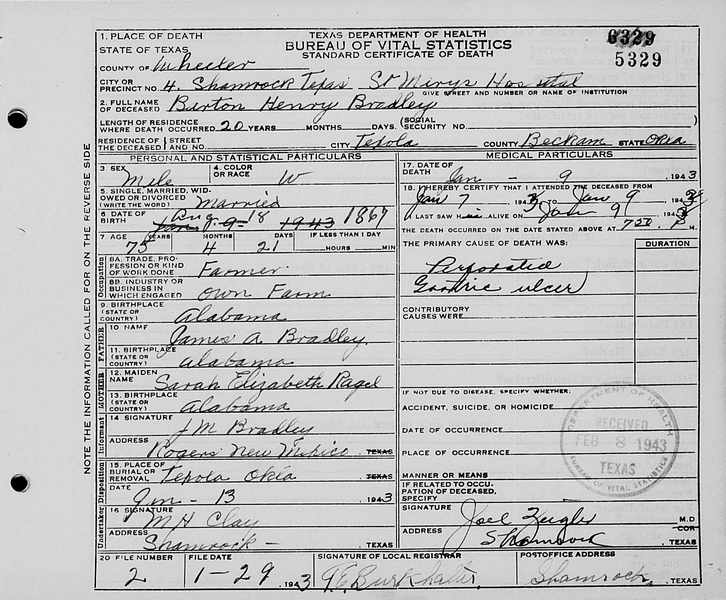 1. PLACE OF DEATH
STATE OF TEXAS
TEXAS DEPARTMENT OF HEALTH
BUREAU OF VITAL STATISTICS
STANDARD CERTIFICATE OF DEATH
6329
5329
COUNTY OF Wheeler
CITY OR PRECINCT NO. 4. Shamrock Texas St Mirys Hospital
GIVE STREET AND NUMBER OR NAME OF INSTITUTION
2. FULL NAME OF DECEASED Burton Henry Bradley
LENGTH OF RESIDENCE WHERE DEATH OCCURRED 20 YEARS MONTHS DAYS (SOCIAL SECURITY NO.
RESIDENCE OF THE DECEASED STREET AND NO. CITY Texola COUNTY Beckam STATE Okla
PERSONAL AND STATISTICAL PARTICULARS
3 SEX Male
4. COLOR OR RACE W
5. SINGLE, MARRIED, WIDOWED OR DIVORCED (WRITE THE WORD) Married
6 DATE OF BIRTH Aug 18 1943 1867
7 AGE 75 YEARS 4 MONTHS 21 DAYS IF LESS THAN 1 DAY HOURS MIN
Occupation
8A. TRADE, PROFESSION OR KIND OF WORK DONE Farmer
8B. INDUSTRY OR BUSINESS IN WHICH ENGAGED Own Farm
9. BIRTHPLACE (STATE OR COUNTRY) Alabama
FATHER
10 NAME James A. Bradley
11. BIRTHPLACE (STATE OR COUNTRY) Alabama
MOTHER
12. MAIDEN NAME Sarah Elizabeth Ragel
13. BIRTHPLACE (STATE OR COUNTRY) Alabama
Informant
14 SIGNATURE J M Bradley
ADDRESS Rogers New Mexico TEXAS
Disposition
15. PLACE OF BURIAL OR REMOVAL Texola Okla TEXAS
DATE Jan - 13 1943
Undertaker
16 SIGNATURE M H Clay
ADDRESS Shamrock - TEXAS
MEDICAL PARTICULARS
17. DATE OF DEATH Jan - 9 1943
18. I HEREBY CERTIFY THAT I ATTENDED THE DECEASED FROM
Jan 7 1943 TO Jan 9 1943
I LAST SAW H im ALIVE ON Jan 9 1943
THE DEATH OCCURRED ON THE DATE STATED ABOVE AT 7:50 P M.
THE PRIMARY CAUSE OF DEATH WAS:
DURATION
Perforated
Gastric ulcer
CONTRIBUTORY CAUSES WERE
IF NOT DUE TO DISEASE, SPECIFY WHETHER:
ACCIDENT, SUICIDE, OR HOMICIDE
DATE OF OCCURRENCE
PLACE OF OCCURRENCE
MANNER OR MEANS
IF RELATED TO OCCUPATION OF DECEASED, SPECIFY
SIGNATURE Joel Zeigler M.D
ADDRESS Shamrock COR TEXAS
DEPARTMENT OF HEALTH
RECEIVED
FEB 8 1943
TEXAS
BUREAU OF VITAL STATISTICS
20 FILE NUMBER 2
FILE DATE 1-29 1943
SIGNATURE OF LOCAL REGISTRAR G.E. Burkhalter
POSTOFFICE ADDRESS Shamrock, TEXAS
NOTE THE INFORMATION CALLED FOR ON THE REVERSE SIDE